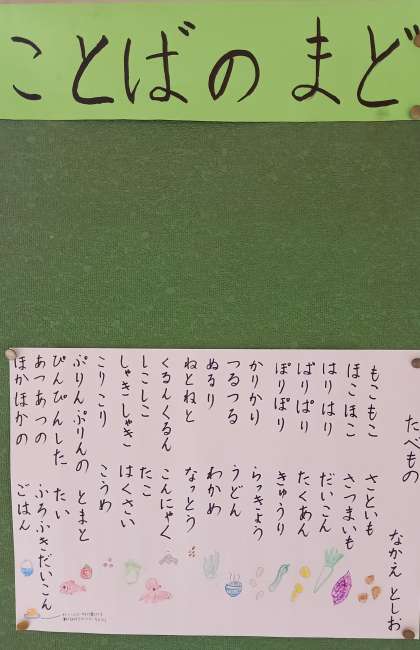 ことばの まど
たべもの
なかえ としお
もこもこ さといも
ほこほこ さつまいも
はりはり だいこん
ぱりぱり たくあん
ぽりぽり きゅうり
かりかり らっきょう
つるつる うどん
ぬるり わかめ
ねとねと なっとう
くるんくるん こんにゃく
しこしこ たこ
しゃきしゃき はくさい
こりこり こうめ
ぷりんぷりんの とまと
ぴんぴんした たい
あつあつの ふろふきだいこん
ほかほかの ごはん